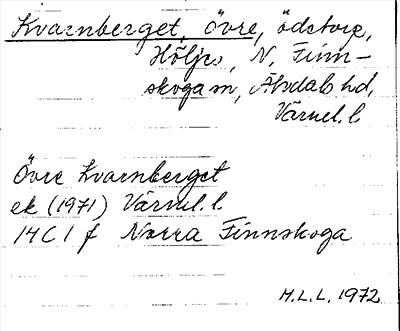 Kvarnberget, Övre, ödetorp,
Höljes, N. Finn-
skoga m, Älvdals hd,
Värml. l
Övre Kvarnberget
ek (1971) Värml. l
14C 1 f Norra Finnskoga
H.L.L. 1972